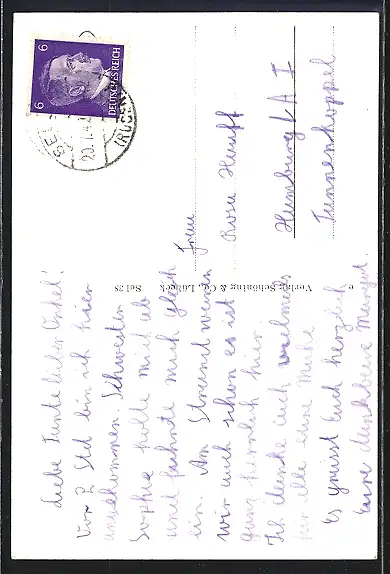 Liebe Tante lieber Onkel!
Vor 2 Std bin ich hier
angekommen. Schwester
Sophie holte mich ab
und führte mich gleich
hin. Am Strand waren
wir auch schon es ist
ganz herrlich hier.
Ich danke auch vielmals
für alle eure Mühe
Es grüsst Euch herzlich
eure dankbare Margret.
Frau
Rosa Hauff
Hamburg L A I
Tannenkoppel
Verlag Schöning & Co., Lübeck
Sel 38
6
6
DEUTSCHES REICH
SEL
20.7.4
(RÜG